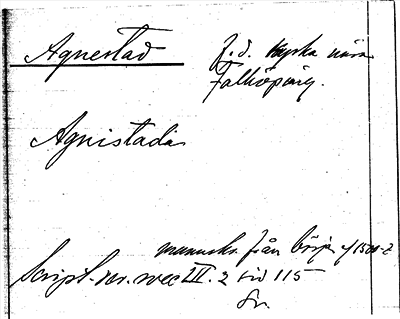 Agnestad f.d. kyrka nära
Falköping.
Agnistada
manuskr. från börj. af 1500-t
Script. rer. svec III. 2 sid 115
Sv.